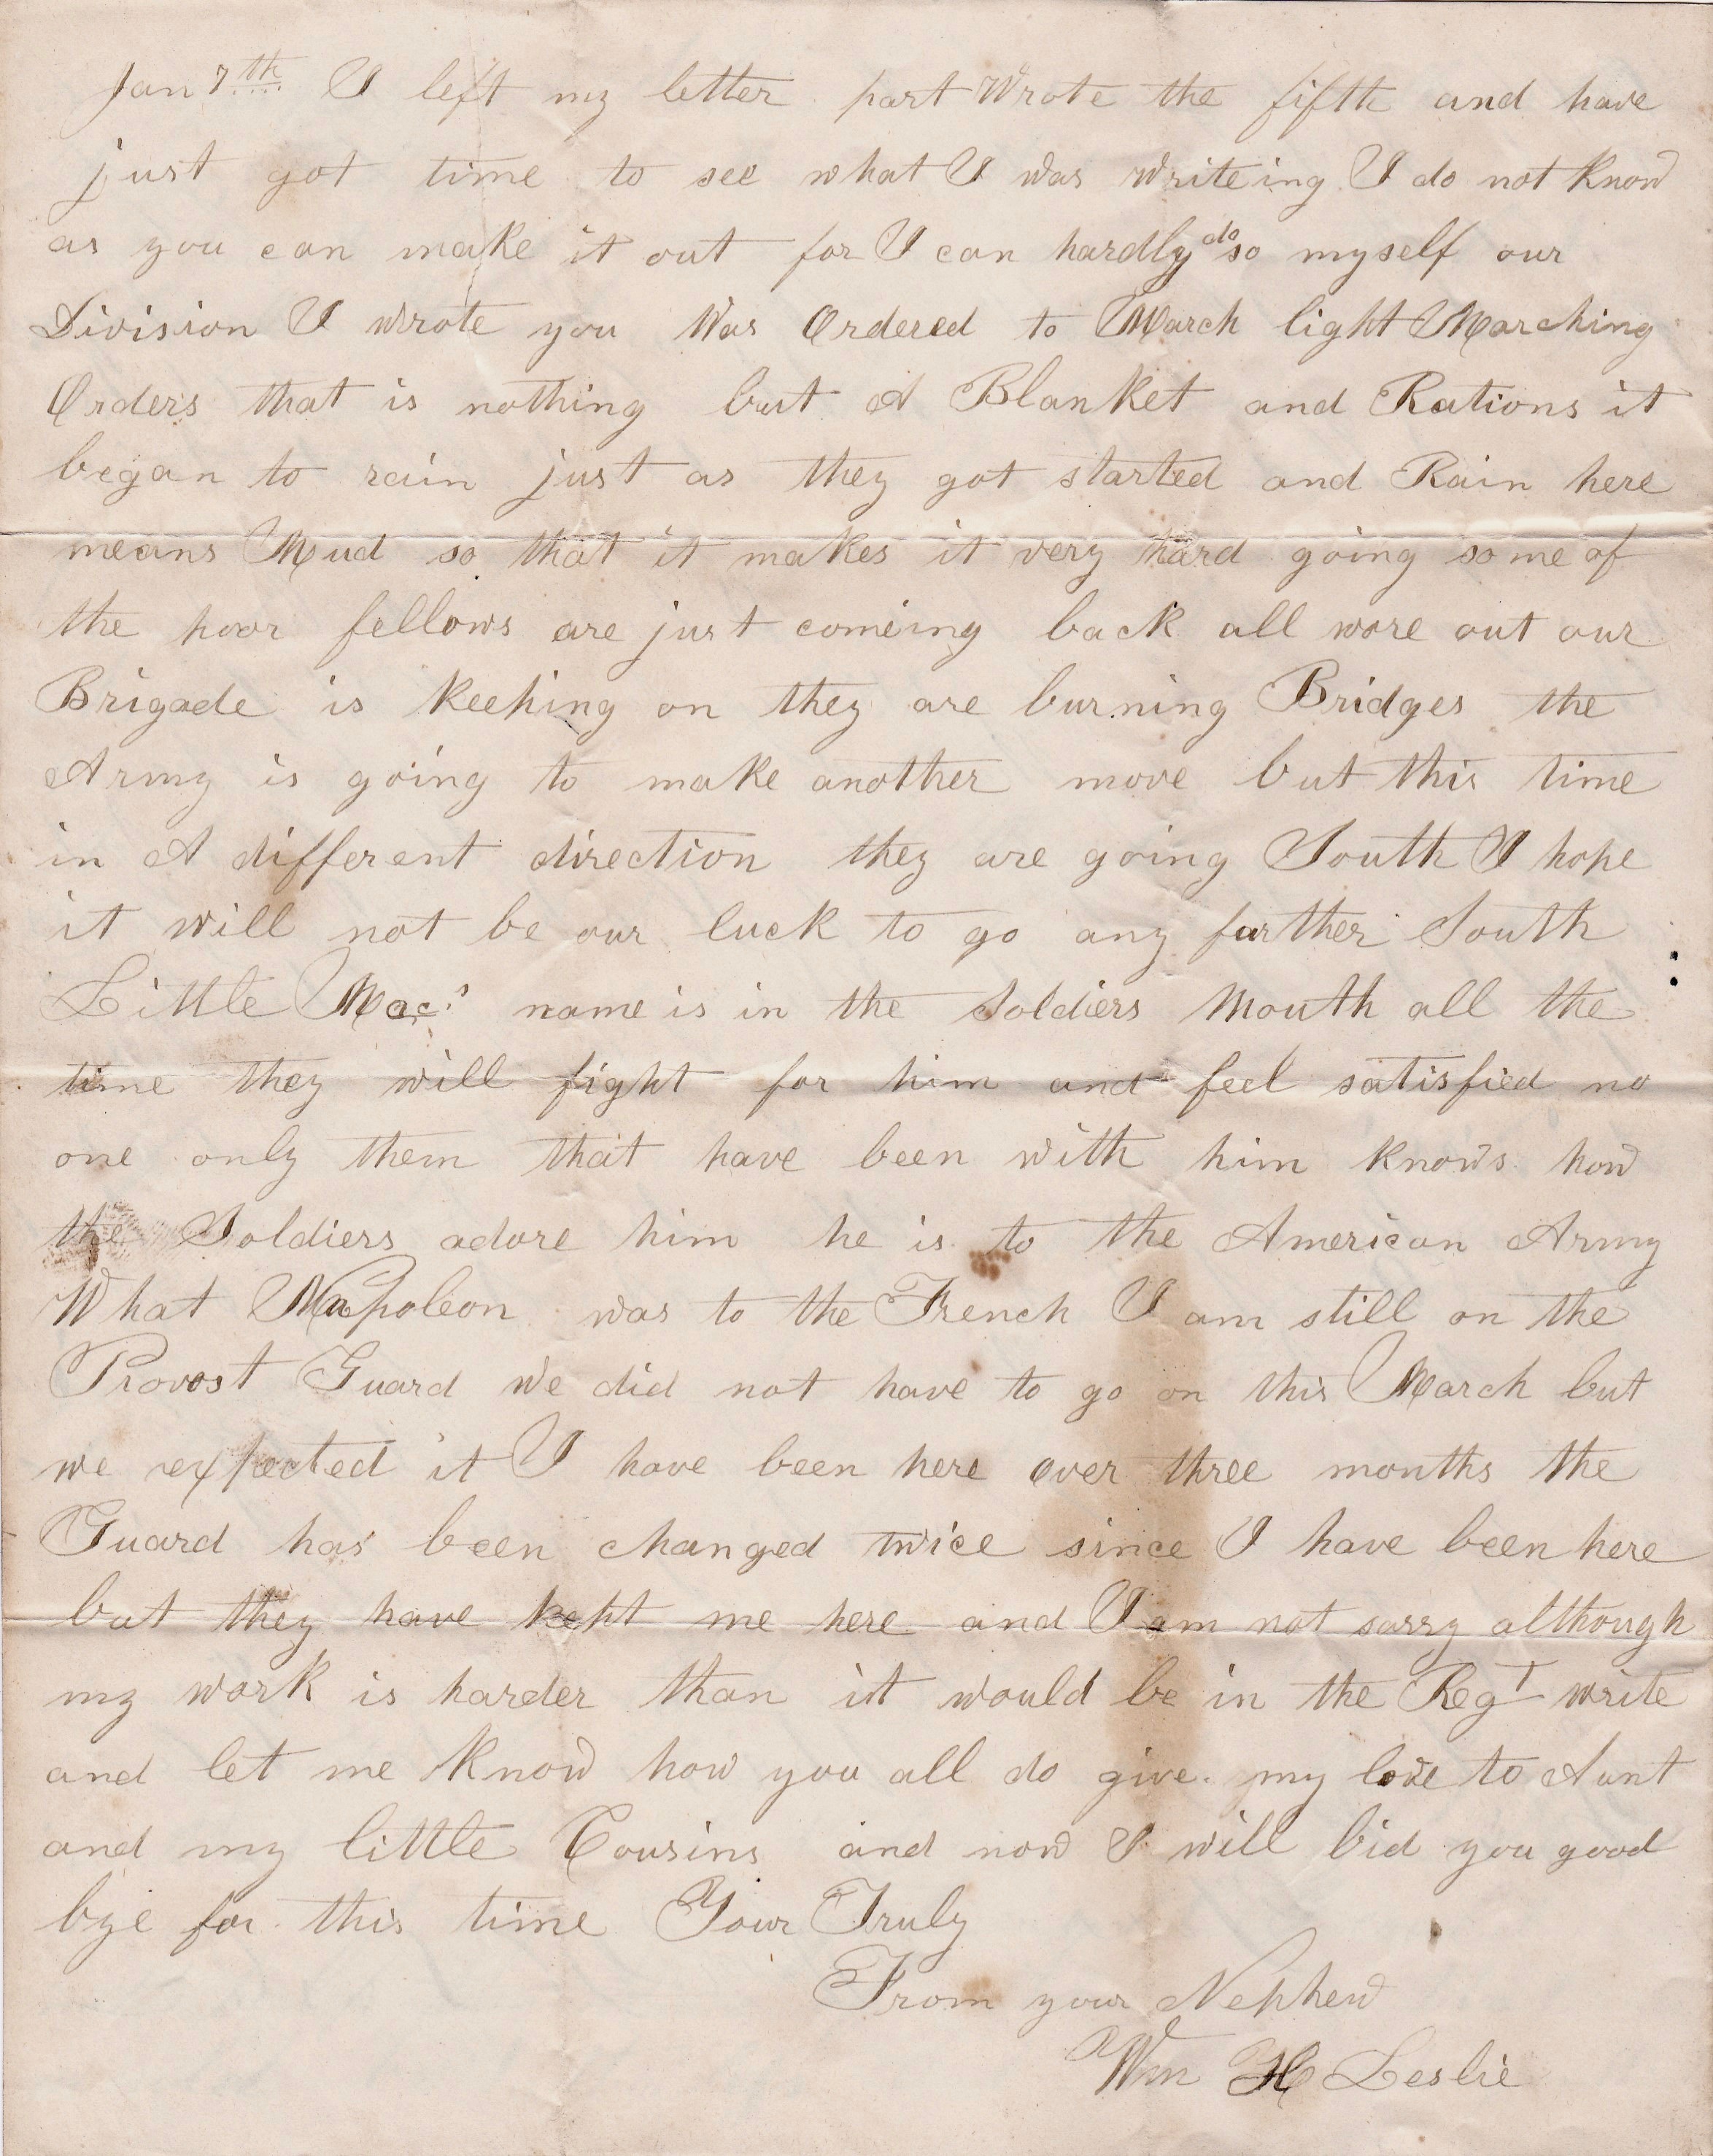 Jan 7th I left my letter part Wrote the fifth and have
just got time to see what I was writeing I do not know
as you can make it out for I can hardly do so myself our
Division I wrote you Was Ordered to March light Marching
Orders that is nothing but A Blanket and Rations it
began to rain just as they got started and Rain here
means Mud so that it makes it very hard going some of
the poor fellows are just comeing back all wore out our
Brigade is keeping on they are burning Bridges the
Army is going to make another move but this time
in A different direction they are going South I hope
it will not be our luck to go any farther South
Little Mac's name is in the Soldiers Mouth all the
time they will fight for him and feel satisfied no
one only them that have been with him knows how
the Soldiers adore him he is to the American Army
What Napoleon was to the French I am still on the
Provost Guard we did not have to go on this March but
we expected it I have been here over three months the
Guard has been changed twice since I have been here
but they have kept me here and I am not sorry although
my work is harder than it would be in the RegT write
and let me know how you all do give my love to Aunt
and my little Cousins and now I will bid you good
bye for this time Your Truly
From your Nephew
Wm H Leslie